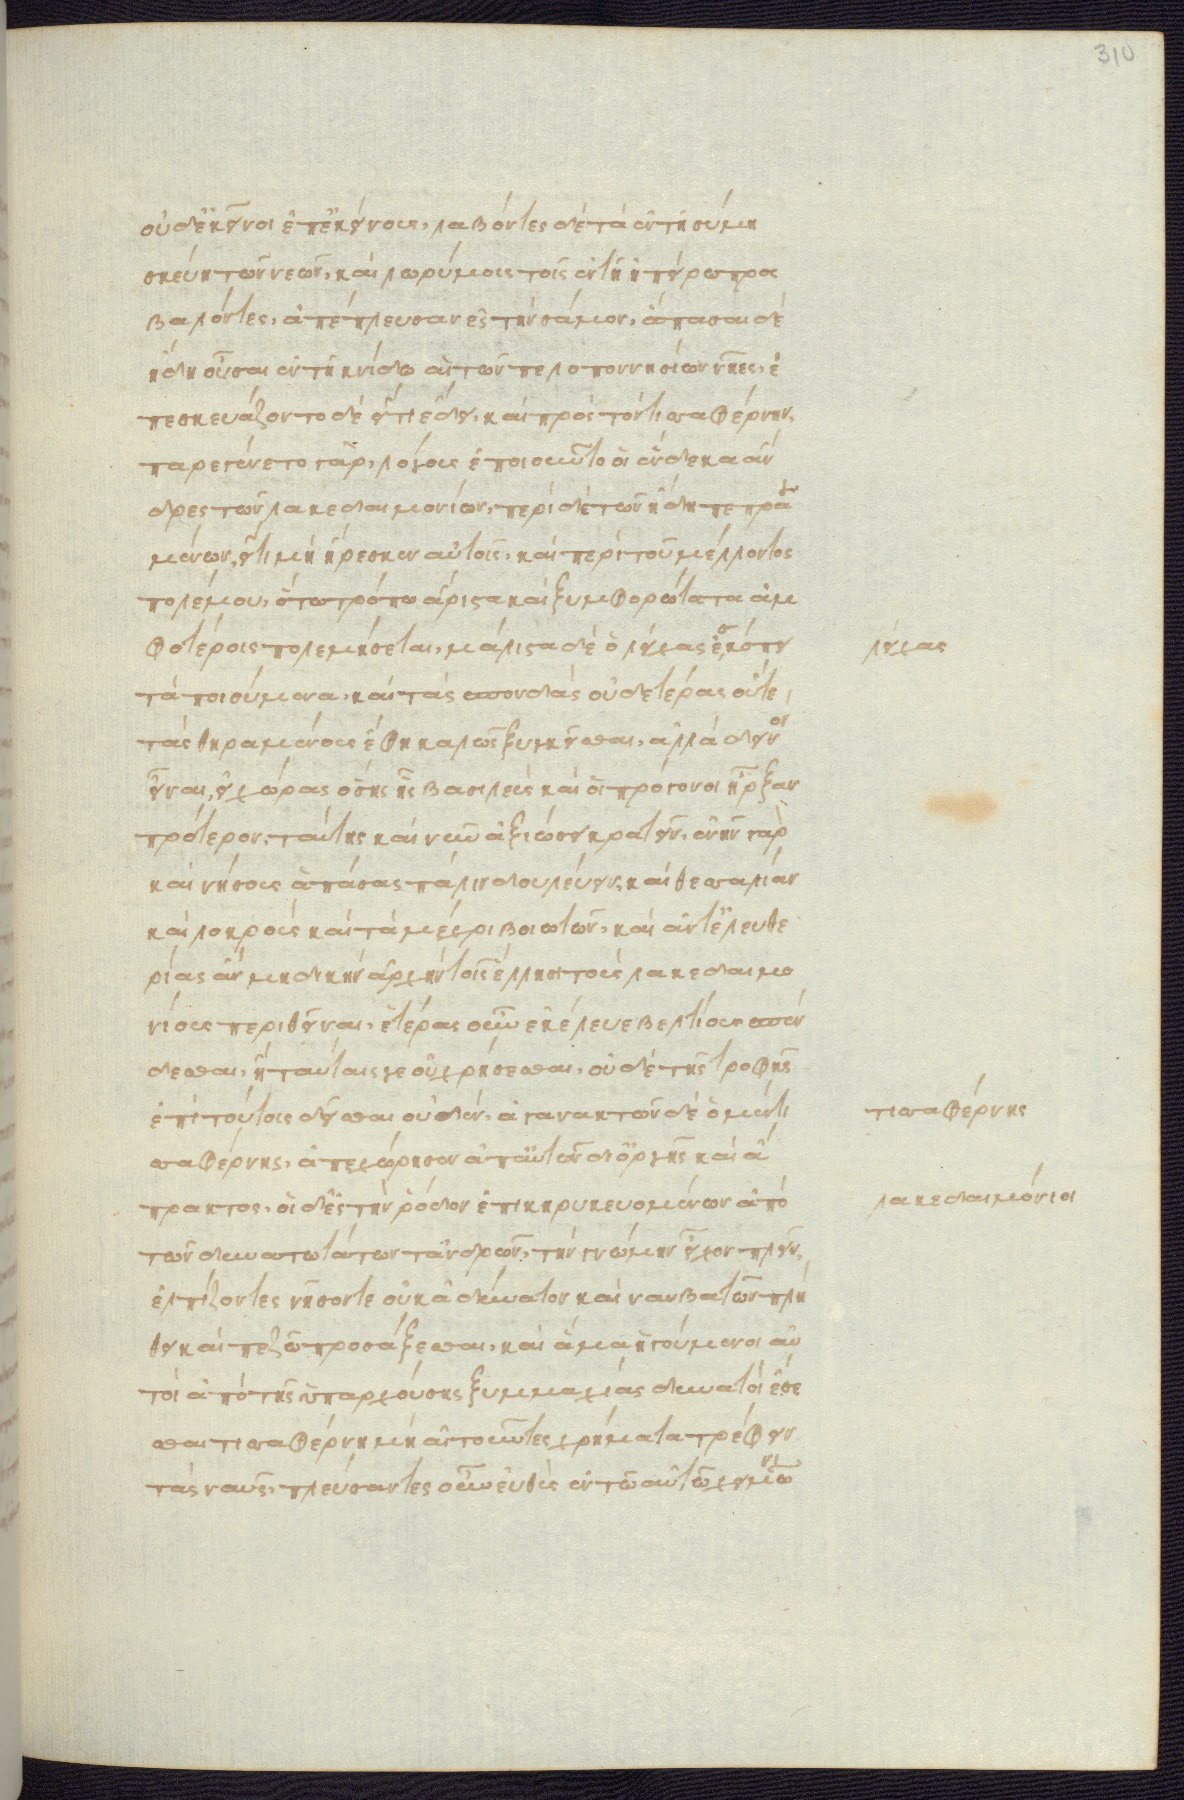 οὐδ' ἐκεῖνοι ἐπ' ἐκείνους, λαβόντες δὲ τὰ ἐν τῆ σύμη
σκεύη τῶν νεῶν, καὶ λωρύμοις τοῖς ἐν τῆ ἠπείρω προσ
βαλόντες, ἀπέπλευσαν ἐς τὴν σάμον, ἅπασαι δὲ
ἤδη οὖσαι ἐν τῆ κνίδω αἱ τῶν πελοποννησίων νῆες, ἐ
πεσκευάζοντο δὲ εἴ τι ἔδει, καὶ πρὸς τὸν τισσαφέρνην,
παρεγένετο γὰρ, λόγους ἐποιοῦντο οἱ ἕνδεκα ἄν
δρες τῶν λακεδαιμονίων, περὶ δὲ τῶν ἤδη πεπραγ
μένων, εἴ τι μὴ ἤρεσκεν αὐτοῖς, καὶ περὶ τοῦ μέλλοντος
πολέμου, ὅτω τρόπω ἄριστα καὶ ξυμφορώτατα ἀμ
φοτέροις πολεμήσεται, μάλιστα δὲ ὁ λείχας ἐσκόπει
λείχας
τὰ ποιούμενα, καὶ τὰς σπονδὰς οὐδετέρας οὔτε,
τὰς θηραμένους ἔφη καλῶς ξυγκεῖσθαι, ἀλλὰ δεινὸν
εἶναι, εἰ χώρας ὅσης ἧς βασιλεὺς καὶ οἱ πρόγονοι ἦρξαν
πρότερον, ταύτης καὶ νῦν ἀξιώσει κρατεῖν, ἐνῆν γὰρ
καὶ νήσους ἁπάσας πάλιν δουλεύειν, καὶ θεσσαλίαν
καὶ λοκροὺς καὶ τὰ μέχρι βοιωτῶν, καὶ ἀντ' ἐλευθε
ρίας ἂν μηδικὴν ἀρχὴν τοῖς ἕλλησι τοὺς λακεδαιμο
νίους περιθεῖναι, ἑτέρας οὖν ἐκέλευε βελτίους σπέν
δεσθαι, ἢ ταύταις γε οὐ χρήσεσθαι, οὐδὲ τῆς τροφῆς
ἐπὶ τούτοις δεῖσθαι οὐδὲν, ἀγανακτῶν δὲ ὁ μὲν τι
τισσαφέρνης
σσαφέρνης, ἀπεχώρησεν ἀπ' αὐτῶν δι' ὀργῆς καὶ ἄ
πρακτος, οἱ δ' ἐς τὴν ῥόδον ἐπικηρυκευομένων ἀπὸ
λακεδαιμόνιοι
τῶν δυνατωτάτων τ' ἀνδρῶν, τὴν γνώμην εἶχον πλεῖν,
ἐλπίζοντες νῆσόν τε οὐκ ἀδύνατον καὶ ναυβατῶν πλή
θει καὶ πεζῶ προσάξεσθαι, καὶ ἅμα ἡγούμενοι αὐ
τοὶ ἀπὸ τῆς ὑπαρχούσης ξυμμαχίας δυνατοὶ ἔσε
σθαι τισσαφέρνη μὴ αἰτοῦντες χρήματα τρέφειν
τὰς ναῦς, πλεύσαντες οὖν εὐθὺς ἐν τῶ αὐτῶ χειμῶνι
310